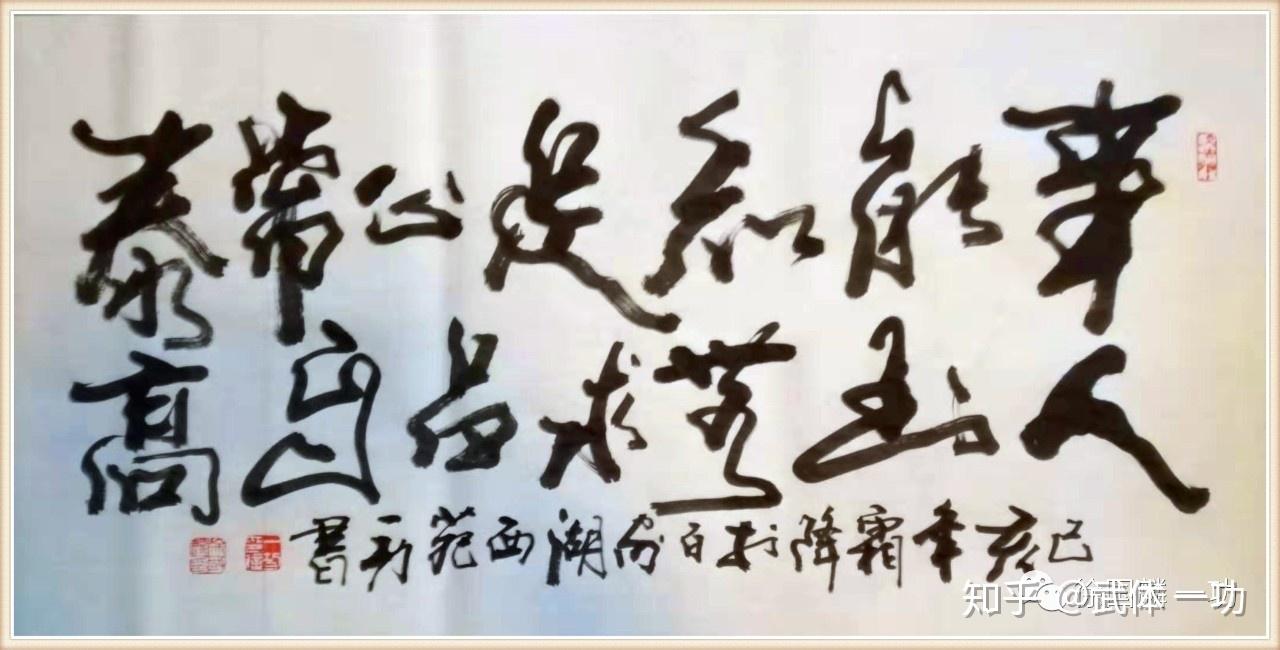 事能知足心常泰
人到無求品自高
己亥年霜降於百家湖西苑一功書
知乎 @武体一功